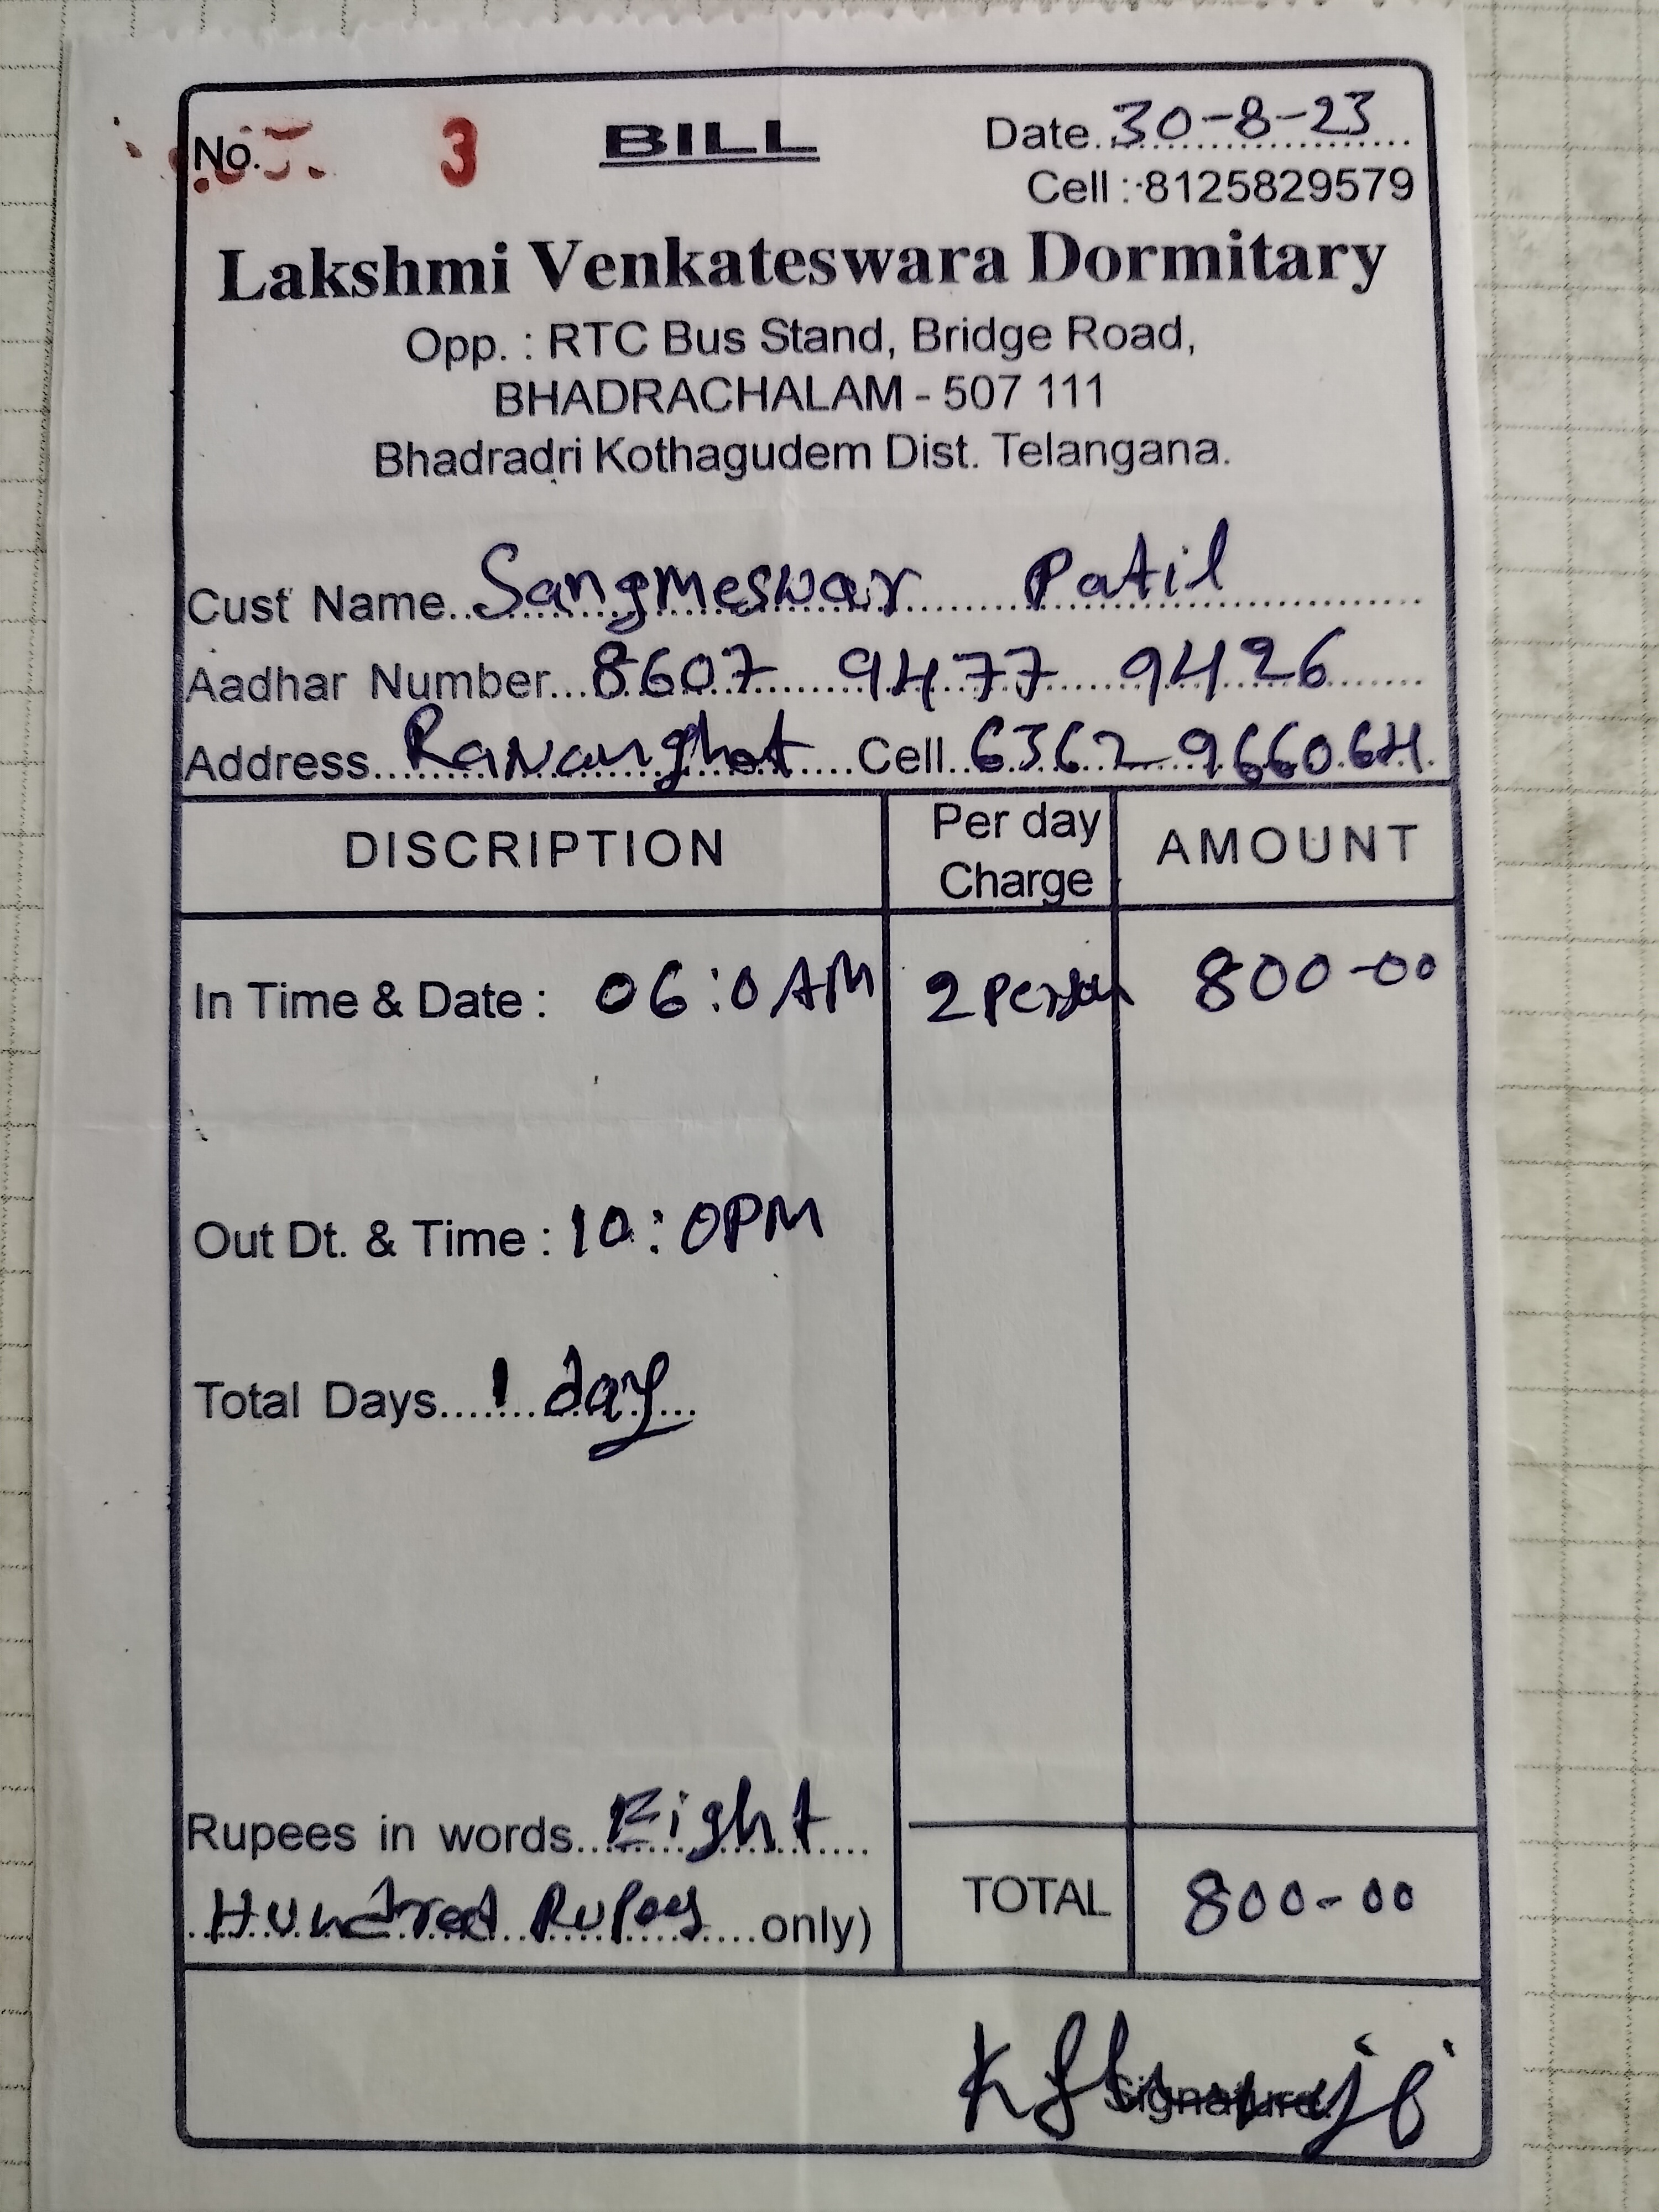 No. 3 BILL Date. 30-8-23
Cell : 8125829579
Lakshmi Venkateswara Dormitary
Opp. : RTC Bus Stand, Bridge Road,
BHADRACHALAM - 507 111
Bhadradri Kothagudem Dist. Telangana.
Cust Name.. Sangmeswar Patil
Aadhar Number... 8607 9477 9426
Address.. Cell.. 6362 966064
DISCRIPTION Per day Charge AMOUNT
In Time & Date : 06:0 AM 2 Person 800-00
Out Dt. & Time : 10:0PM
Total Days.... 1 day
Rupees in words... Eight
Hundred Rupees only) TOTAL 800-00
Signature.